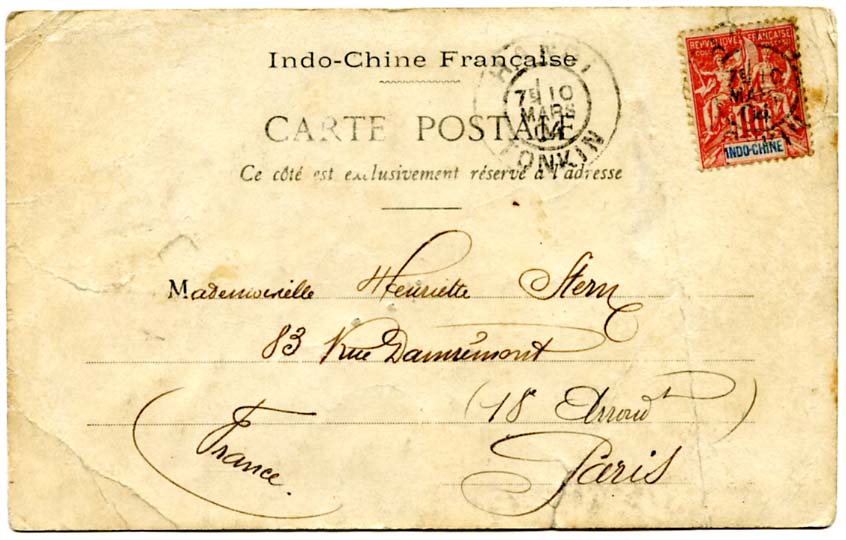 Indo-Chine Française
CARTE POSTALE
Ce côté est exclusivement réservé à l'adresse
HANOI
7E 10
MARS
04
TONKIN
REPUBLIQUE FRANÇAISE
10
INDO-CHINE
7E 10
MARS
Mademoiselle Henriette Stern
83 Rue Damrémont
(18e Arrondt)
Paris
(France.